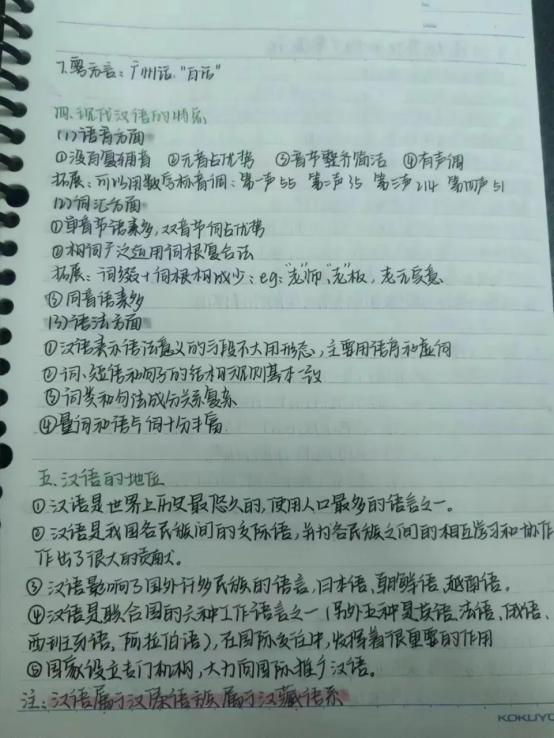 7.粤方言：广州话."白话"
四.现代汉语的特点
(1)语音方面
①没有复辅音 ②元音占优势 ③音节整齐简洁 ④有声调
拓展：可以用数字标音调：第一声55 第二声35 第三声214 第四声51
(2)词汇方面
①单音节语素多，双音节词占优势
②构词广泛运用词根复合法
拓展：词缀+词根构成少：eg："老"师、"老"板，老无实意
③同音语素多
(3)语法方面
①汉语表示语法意义的手段不大用形态，主要用语序和虚词
②词、短语和句子的结构原则基本一致
③词类和句法成分关系复杂
④量词和语气词十分丰富.
五.汉语的地位
①汉语是世界上历史最悠久的，使用人口最多的语言之一。
②汉语是我国各民族间的交际语，并为各民族之间的相互学习和协作
作出了很大的贡献。
③汉语影响了国外许多民族的语言，日本语、朝鲜语、越南语。
④汉语是联合国的六种工作语言之一(另外五种是英语、法语、俄语、
西班牙语，阿拉伯语)，在国际交往中，发挥着很重要的作用
⑤国家设立专门机构，大力向国际推广汉语。
注：汉语属于汉藏语系
KOKUYO